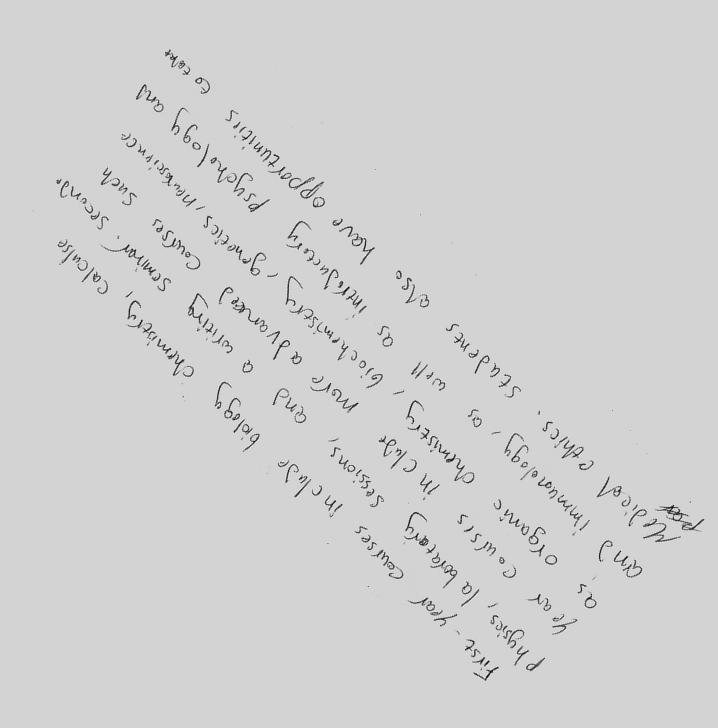 First-year courses include biology chemistry, calculse
physics, laboratary sessions, and a writing seminar. second.
year courses include more advanced courses such
as organic chemistry, biochemistry, genetics, neuroscience
and immunology, as well as introductory psychology and
Medical ethics. students also have opportunities to take